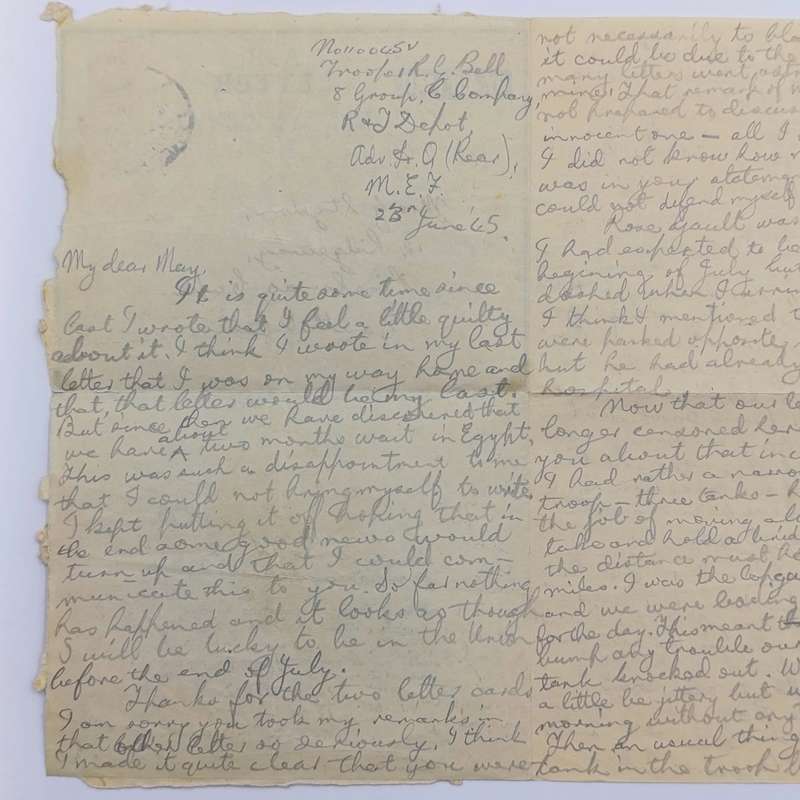 No110045V
Trooper R. G. Bell
8 Group, C Company,
R & T Depot,
Adv. Q (Rear),
M. E. F.
23rd June '45.
My dear May,
It is quite some time since
last I wrote that I feel a little guilty
about it. I think I wrote in my last
letter that I was on my way home and
that, that letter would be my last.
But since then we have discovered that
we have about two months wait in Egypt,
This was such a disappointment to me
that I could not bring myself to write
I kept putting it of hoping that in
the end some good news would
turn up and that I would com-
municate this to you. So far nothing
has happened and it looks as though
I will be lucky to be in the Union
before the end of July.
Thanks for the two letter cards
I am sorry you took my remarks in
that other letter so seriously. I think
I made it quite clear that you were
not necessarily to bla
it could be due to the
many letters went ast
mine. That remark of
not prepared to discuss
innocent one — all I
I did not know how
was in your statemen
could not defend myself
Rose was
I had expected to be
begining of July but
dashed when I arri
I think I mentioned
were parked opposite
but he had already
hospital.
Now that our le
longer censored her
you about that inc
I had rather a narro
troop — three tanks —
the job of moving al
take and hold a brid
the distance must h
miles. I was the
and we were leading
for the day. This meant
bump any trouble our
tank knocked out. W
a little be jittery but
morning without any
Then an usual thing
tank in the troop